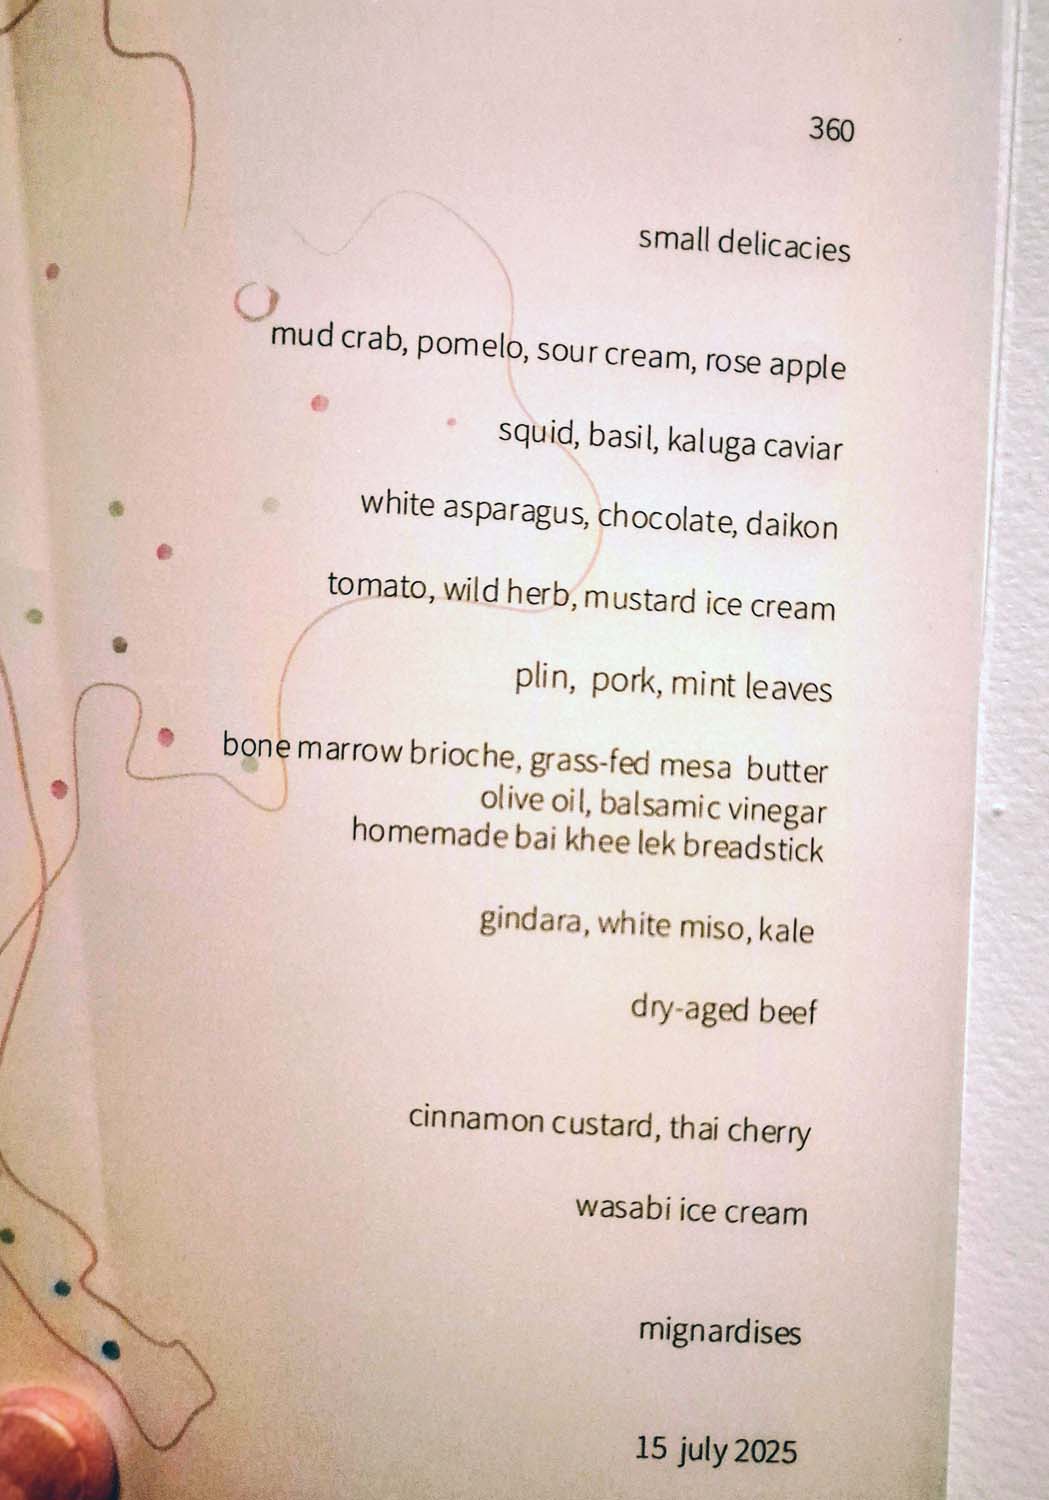 360
small delicacies
mud crab, pomelo, sour cream, rose apple
squid, basil, kaluga caviar
white asparagus, chocolate, daikon
tomato, wild herb, mustard ice cream
plin, pork, mint leaves
bone marrow brioche, grass-fed mesa butter
olive oil, balsamic vinegar
homemade bai khee lek breadstick
gindara, white miso, kale
dry-aged beef
cinnamon custard, thai cherry
wasabi ice cream
mignardises
15 july 2025